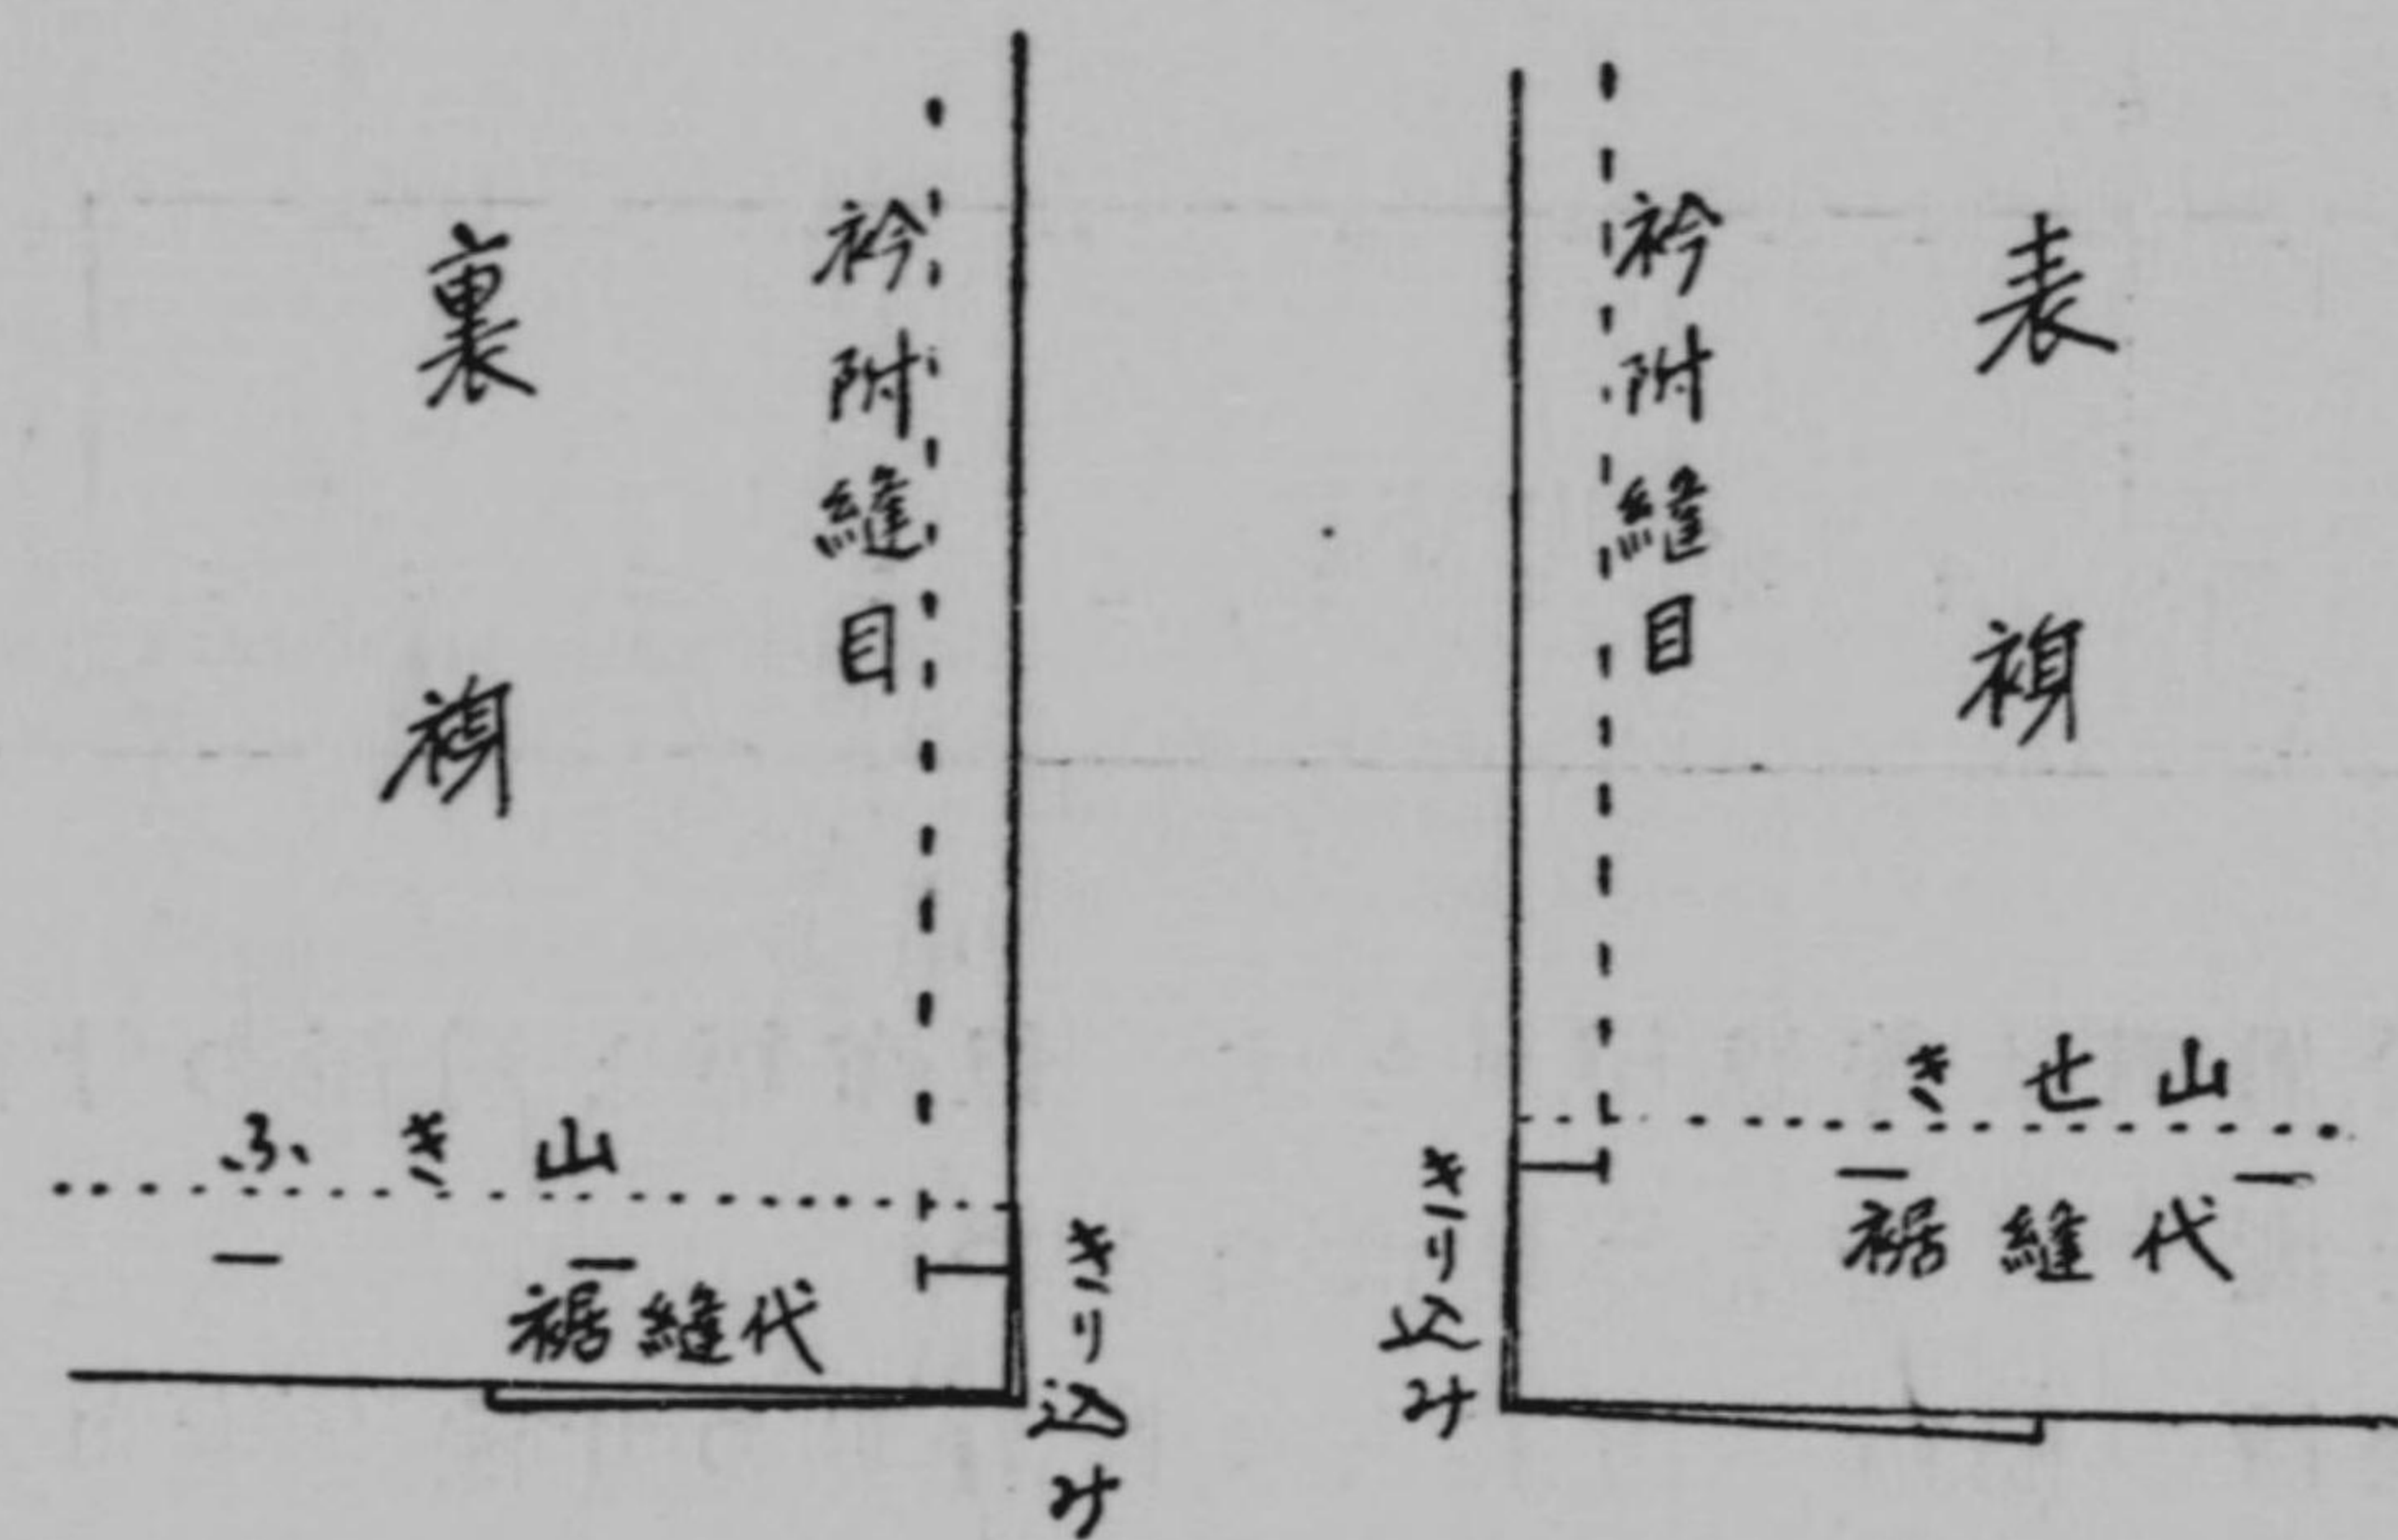 表裑
衿附縫目
きせ山
裾縫代
きり込み
裏裑
衿附縫目
ふき山
裾縫代
きり込み